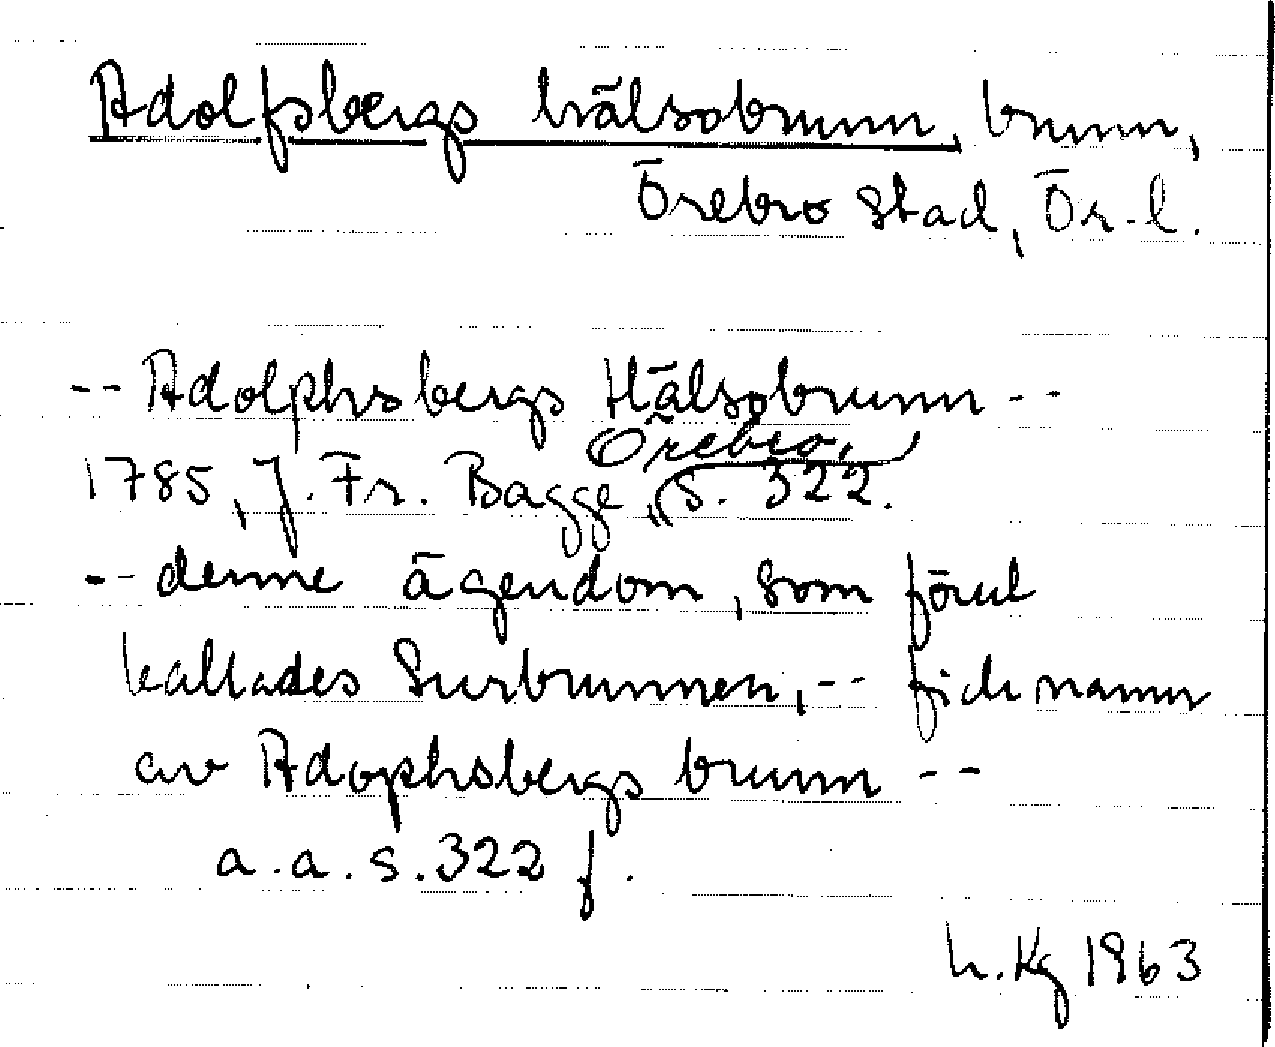 Adolfsbergs hälsobrunn, brunn,
Örebro stad, Ör-l.
-- Adolphsbergs Hälsobrunn --
1785, J. Fr. Bagge, Örebro, s. 322.
-- denne ägendom, som förut
kallades Surbrunnen, -- fick namn
av Adophsbergs brunn --
a.a. s. 322 f.
h. Kg 1963